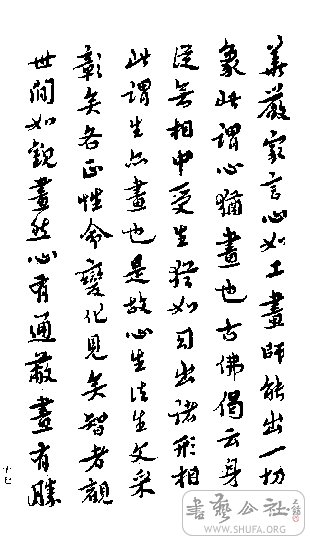 華嚴家言心如工畫師能出一切
象此謂心猶畫也古佛偈云身
從無相中受生猶如幻出諸形相
此謂生亦畫也是故心生法生文采
彰矣各正性命變化見矣智者觀
世間如觀畫然心有通蔽畫有勝
十七
書藝公社
WWW.SHUFA.ORG